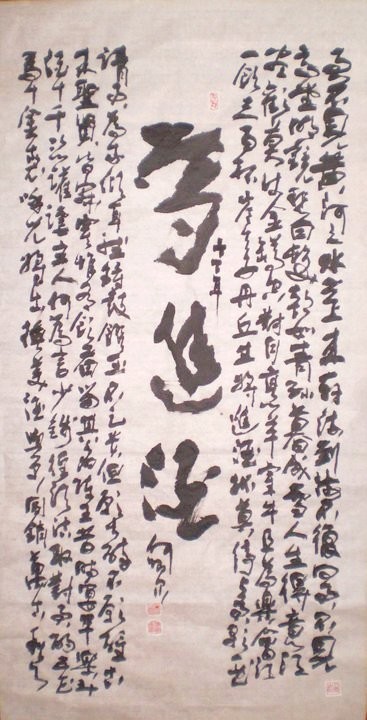 君不見黃河之水天上來奔流到海不復回君不見
高堂明鏡悲白髮朝如青絲暮成雪人生得意須
盡歡莫使金樽空對月烹羊宰牛且為樂會須
一飲三百杯岑夫子丹丘生將進酒杯莫停與君歌一曲
將進酒
請君為我傾耳聽鐘鼓饌玉不足貴但願長醉不願醒古
來聖賢皆寂寞惟有飲者留其名陳王昔時宴平樂斗
酒十千恣讙謔主人何為言少錢徑須沽取對君酌五花
馬千金裘呼兒將出換美酒與爾同銷萬古愁